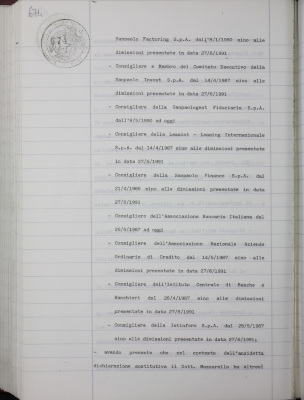 671
Sanpaolo Factoring S.p.A. dall'9/1/1990 sino alle
dimissioni presentate in data 27/6/1991
- Consigliere e Membro del Comitato Esecutivo della
Sanpaolo Invest S.p.A. dal 14/4/1987 sino alle
dimissioni presentate in data 27/6/1991
- Consigliere della Sanpaologest Fiduciaria S.p.A.
dall'9/5/1990 ad oggi
- Consigliere della Leasint - Leasing Internazionale
S.p.A. dal 14/4/1987 sino alle dimissioni presentate
in data 27/6/1991
- Consigliere della Sanpaolo Finance S.p.A. dal
sino alle dimissioni presentate in data
27/6/1991
- Consigliere dell'Associazione Bancaria Italiana dal
ad oggi
- Consigliere dell'Associazione Nazionale Aziende
Ordinarie di Credito dal 14/5/1987 sino alle
dimissioni presentate in data 27/6/1991
- Consigliere dell'Istituto Centrale di Banche e
Banchieri dal 28/4/1987 sino alle dimissioni
presentate in data 27/6/1991
- Consigliere della S.p.A. dal 29/5/1987
sino alle dimissioni presentate in data 27/6/1991;
- avendo presente che nel contesto dell'anzidetta
dichiarazione sostitutiva il Dott. ha altresì